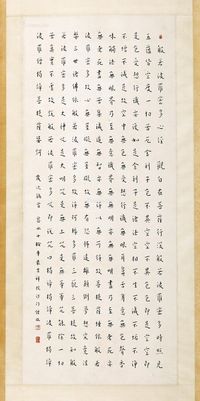 般若波羅蜜多心經 觀自在菩薩行深般若波羅蜜多時照見
五蘊皆空度一切苦厄舍利子色不異空空不異色色即是空空即
是色受想行識亦復如是舍利子是諸法空相不生不滅不垢不淨
不增不減是故空中無色無受想行識無眼耳鼻舌身意無色聲香
味觸法無眼界乃至無意識界無無明亦無無明盡乃至無老死亦
無老死盡無苦集滅道無智亦無得以無所得故菩提薩埵依般若
波羅蜜多故心無罣礙無罣礙故無有恐怖遠離顛倒夢想究竟涅
槃三世諸佛依般若波羅蜜多故得阿耨多羅三藐三菩提故知般
若波羅蜜多是大神咒是大明咒是無上咒是無等等咒能除一切
苦真實不虛故說般若波羅蜜多咒即說咒曰揭諦揭諦波羅揭諦
波羅僧揭諦菩提薩婆訶